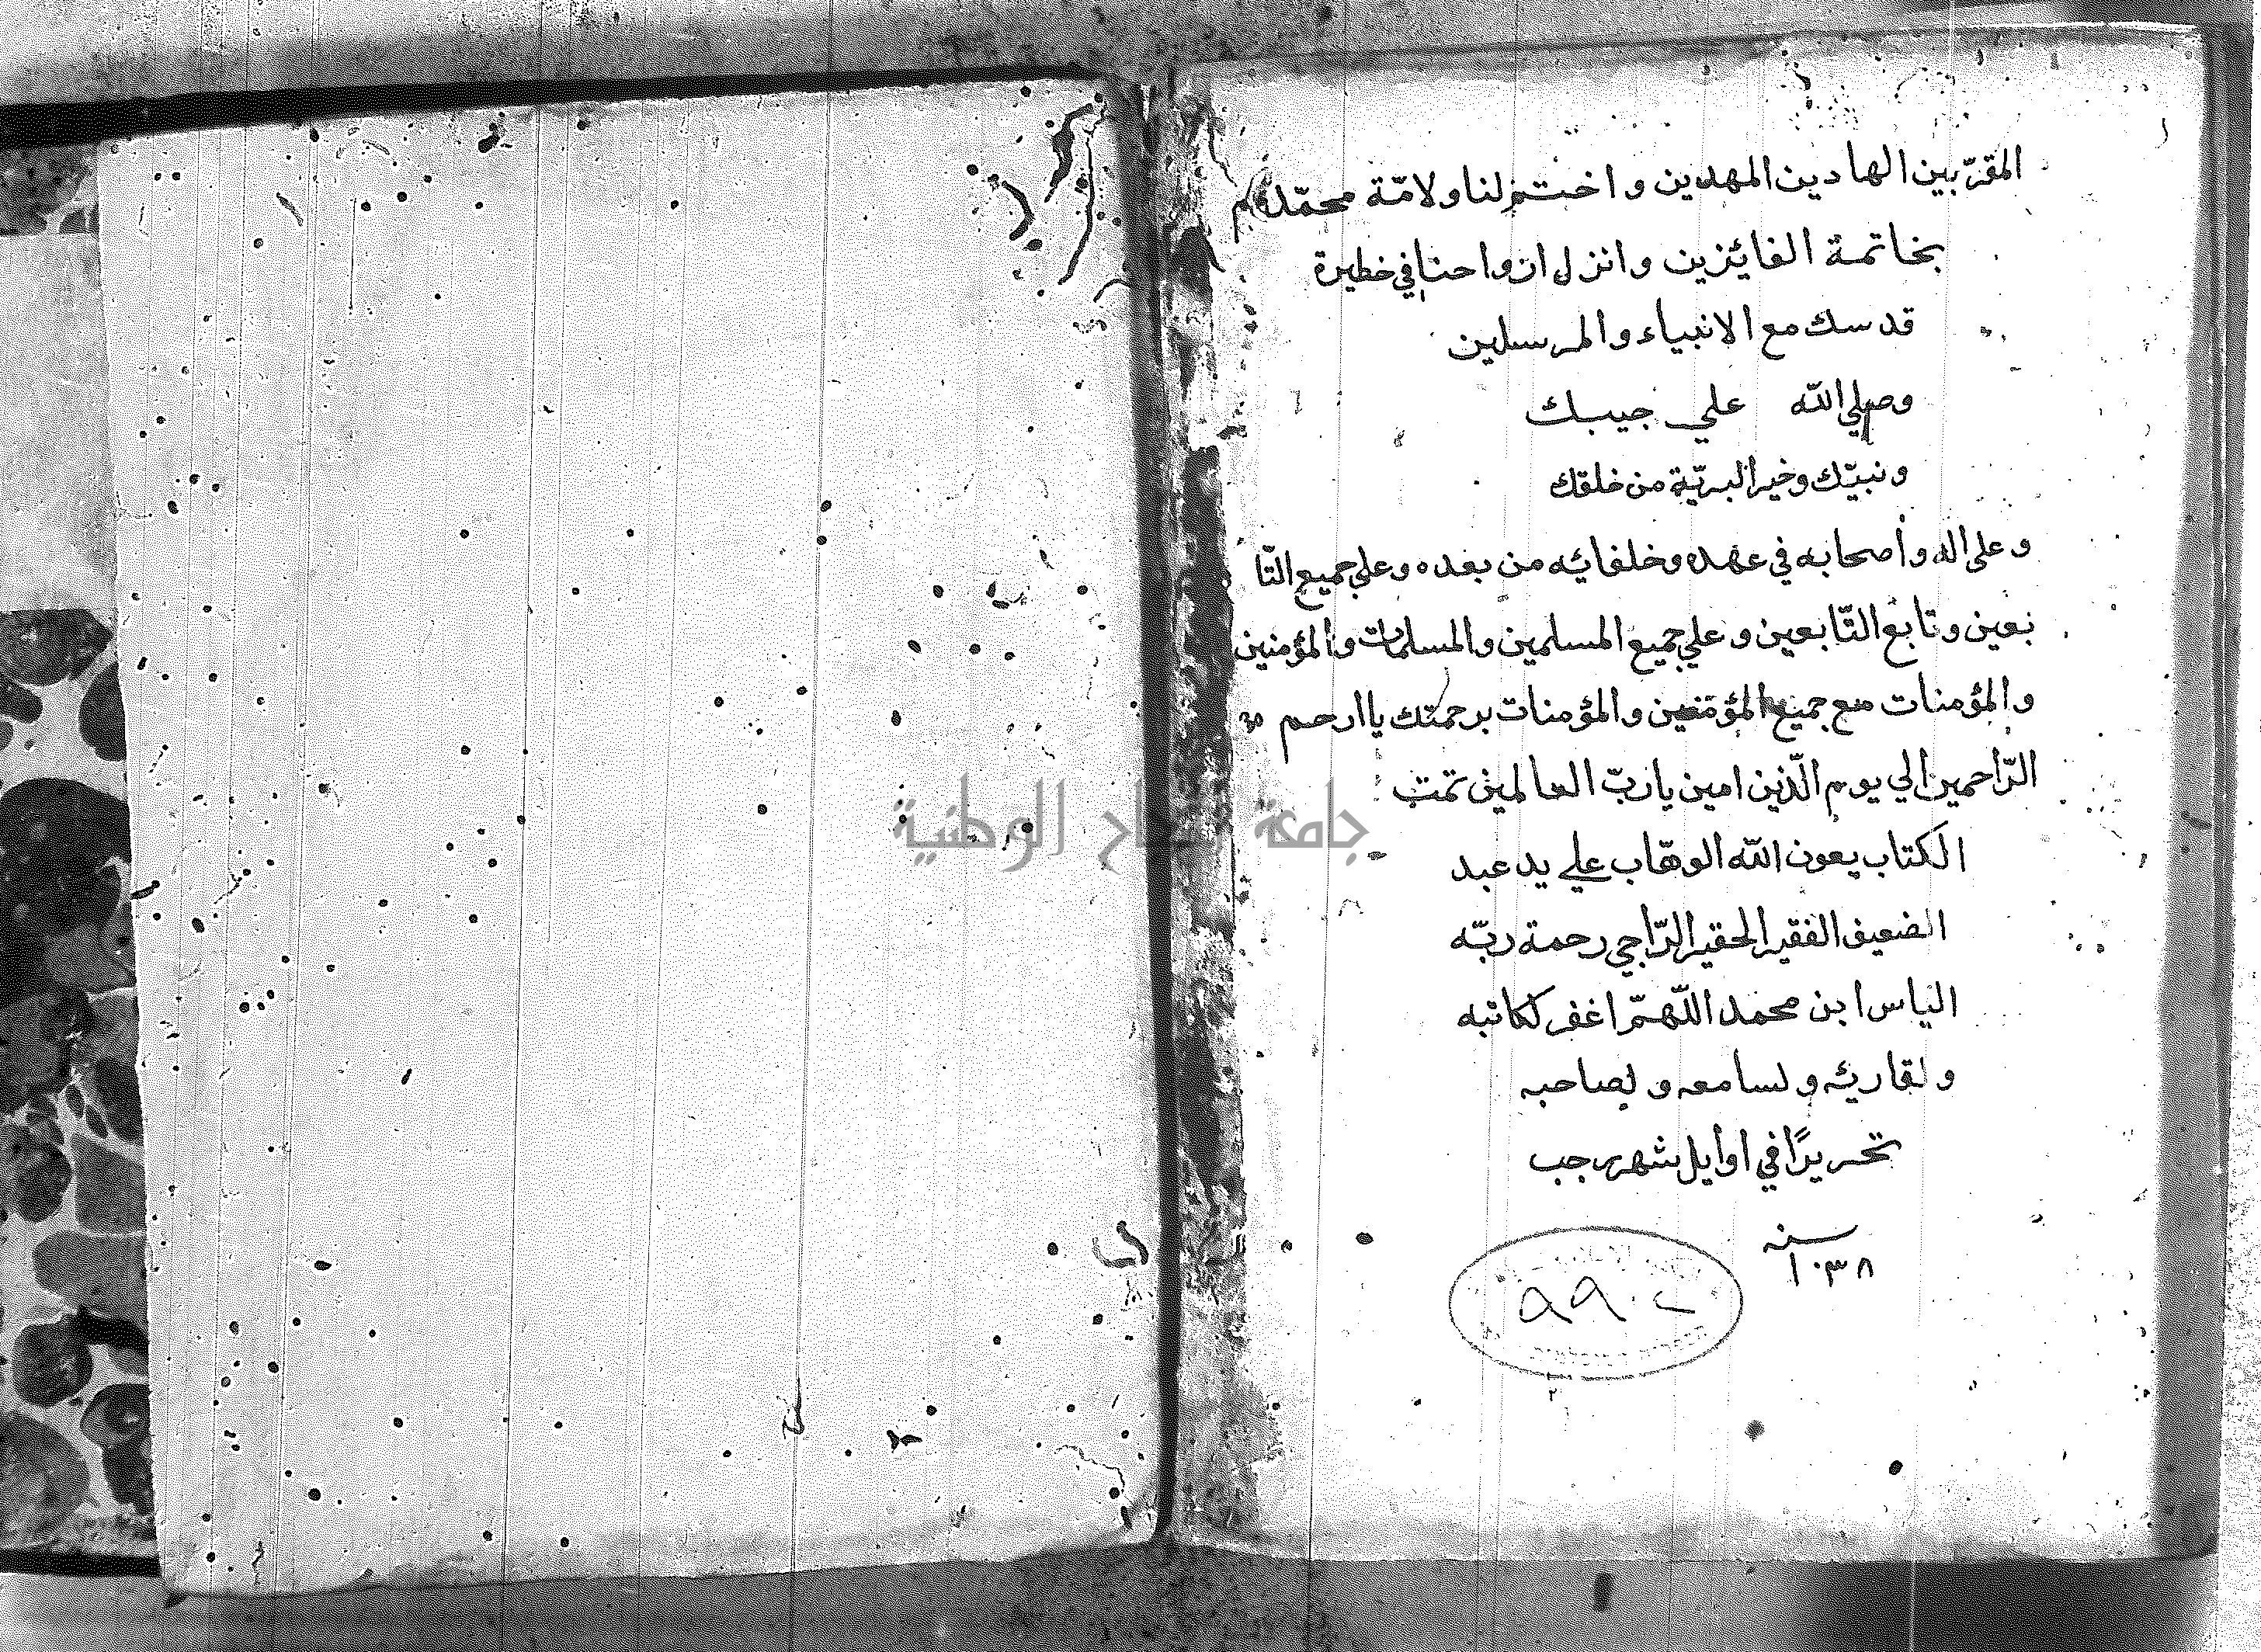 المقرّبين الهادين المهدين واختم لنا ولامّة محمّد
بخاتمة الفايزين وانزل ارواحنا في خطيرة
قدسك مع الانبياء والمرسلين
وصلي الله علي حبيبك
ونبيّك وخير البريّة من خلقك
وعلى اله وأصحابه في عهده وخلفائه من بعده وعلي جميع التّا
بعين وتابع التّابعين وعلي جميع المسلمين والمسلمات والمؤمنين
والمؤمنات مع جميع المؤمنين والمؤمنات برحمتك يا ارحم
الرّاحمين الي يوم الّذين امين يا ربّ العالمين تمت
الكتاب بعون الله الوهّاب علي يد عبد
الضعيف الفقير الحقير الرّاجي رحمة ربّه
الياس ابن محمد اللّهمّ اغفر لكاتبه
ولقاريه ولسامعه ولصاحبه
تحريرًا في اوايل شهر رجب
سنه
١٠٣٨
جامعة النجاح الوطنية